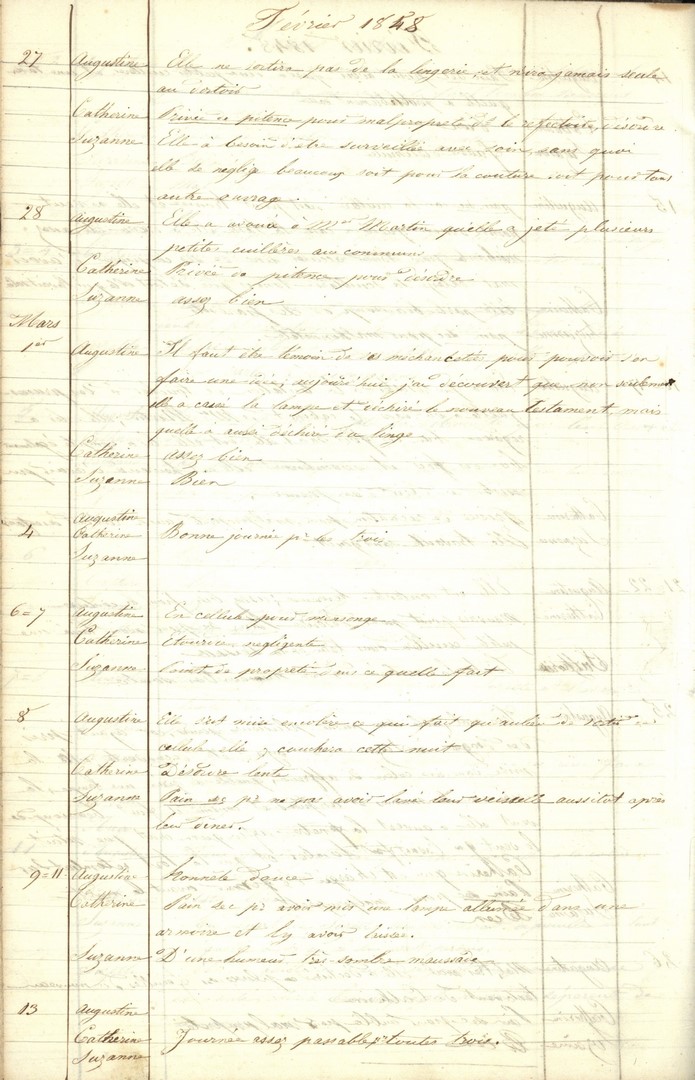 Février 1848
27 Augustine Elle ne sortira pas de la lingerie, et n'ira jamais seule
au dortoir
Catherine Privée de pitence pour malpropreté de le refectoire, désordre
Suzanne Elle à besoin d'être surveillée avec soin, sans quoi
elle se neglig beaucoup soit pour la couture soit pour tout
autre ouvrage.
28 Augustine Elle a avouée à Mel Martin quelle a jeté plusieurs
petites cuillères au commun
Catherine Privée de pitence pour désordre
Suzanne assez bien
Mars
1er Augustine Il faut être témoin de sa méchanceté pour pouvoir s'en
faire une idée, aujour'hui j'ai découvert que non seulement
elle a cassé la lampe et déchiré le nouveau testament mais
quelle à aussi déchiré du linge
Catherine assez bien
Suzanne Bien
Augustine
4 Catherine Bonne journée pr les trois
Suzanne
6=7 Augustine En cellule pour mensonge
Catherine étourdie negligente
Suzanne Point de propreté dans ce quelle fait
8 Augustine Elle s'est mise en colère ce qui fait qu'aulieu de sortir de
cellule elle y couchera cette nuit
Catherine Désordre lente
Suzanne Pain sec pr ne pas avoir lavé leur veiselle aussitot après
leur diner.
9=11 Augustine honnete douce
Catherine Pain sec pr avoir mis une lampe allumée dans une
armoire et l'y avoir laissée.
Suzanne D'une humeur très sombre maussade
13 Augustine
Catherine Journée assez passable pr toutes trois.
Suzanne